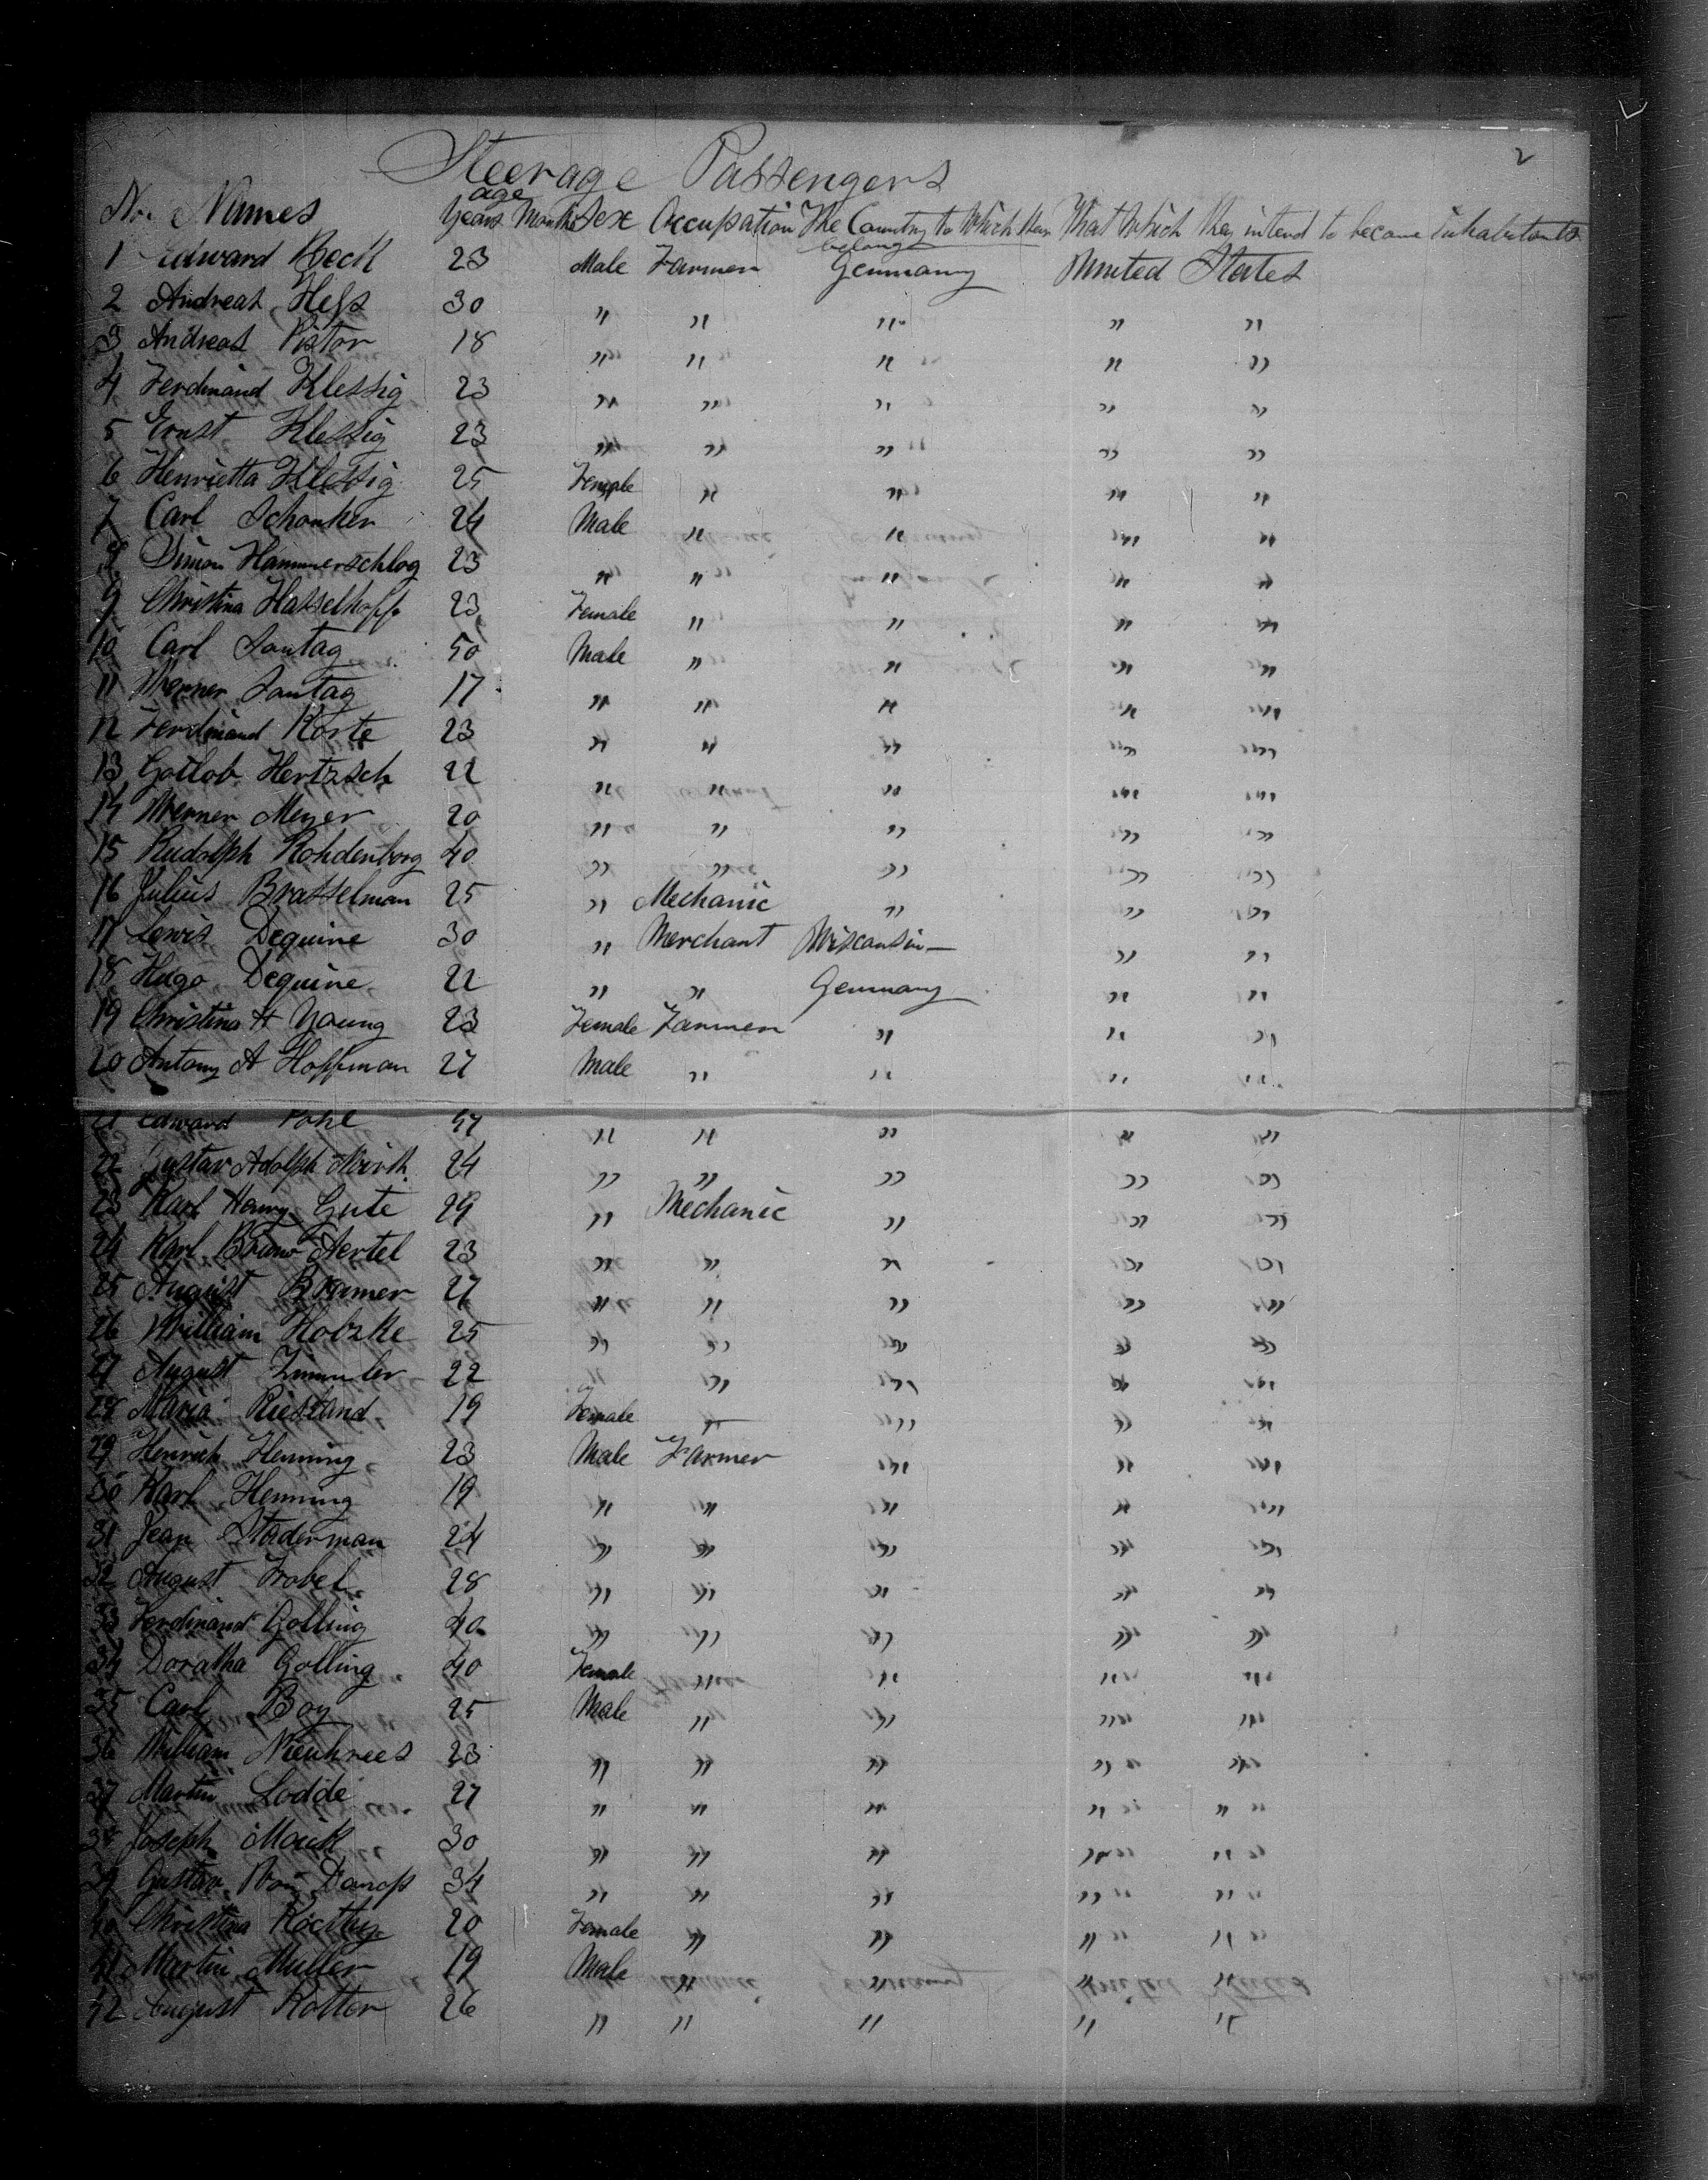 2
Steerage Passengers
age
No. Names Years Months Sex Occupation The Country to Which they belong That Which they intend to become inhabitants
1 Edward Beck 23 Male Farmer Germany United States
2 Andreas Hess 30 " " " " "
3 Andreas Pistor 18 " " " " "
4 Ferdinand Klessig 23 " " " " "
5 Ernst Klessig 23 " " " " "
6 Henrietta Klessig 25 Female " " " "
7 Carl Schonker 24 Male " " " "
8 Simon Hammerschlog 23 " " " " "
9 Christina Hasselhopf 23 Female " " " "
10 Carl Sontag 50 Male " " " "
11 Werner Sontag 17 " " " " "
12 Ferdinand Korte 23 " " " " "
13 Gotlob Hertzsch 22 " " " " "
14 Werner Meyer 20 " " " " "
15 Rudolph Rohdenborg 40 " " " " "
16 Julius Brasselman 25 " Mechanic " " "
17 Lewis Dequine 30 " Merchant Wisconsin " "
18 Hugo Dequine 22 " " Germany " "
19 Christina H Young 23 Female Farmer " " "
20 Antony A Hoffman 27 Male " " " "
21 Edward Pohl " " " " "
22 Gustav Adolph Wirth 24 " " " " "
23 Karl Henry Gute 29 " Mechanic " " "
24 Karl Bruno 23 " " " " "
25 August Bramer 27 " " " " "
26 William Hotzke 25 " " " " "
27 August Zimmler 22 " " " " "
28 Maria Riestand 19 Female " " "
29 Henrich Henning 23 Male Farmer " " "
30 Karl Henning 19 " " " " "
31 Jean Stoderman 24 " " " " "
32 August Frobel 28 " " " " "
33 Ferdinand Golling 40 " " " " "
34 Doratha Golling 40 Female " " " "
35 Carl Boy 25 Male " " " "
36 William 23 " " " " "
37 Martin Lodde 27 " " " " "
38 Joseph 30 " " " " "
39 Gustav Von 34 " " " " "
40 Christina 20 Female " " " "
41 Martin Muller 19 Male " " " "
42 August Kotter 26 " " " " "